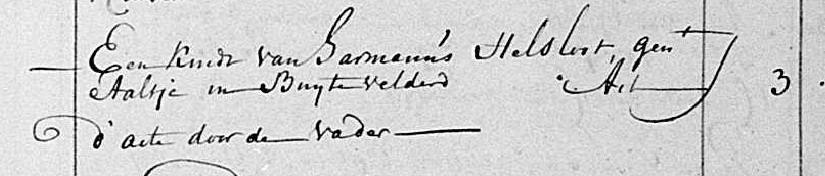 Een Kindt van Harmanus Helsloot, gent
Aaltje in Buytevelderd Act 3
d'acte door de vader